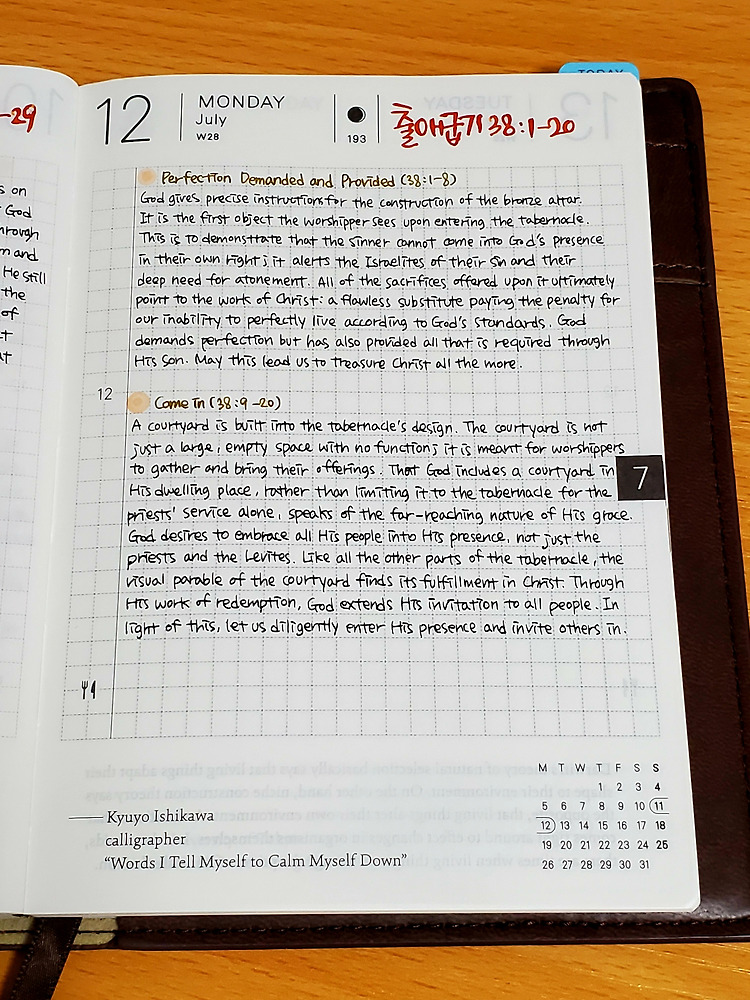 TODAY
-29
12
MONDAY
July
W28
193
출애굽기 38:1-20
Perfection Demanded and Provided (38:1-8)
God gives precise instructions for the construction of the bronze altar.
It is the first object the worshipper sees upon entering the tabernacle.
This is to demonstrate that the sinner cannot come into God's presence
in their own right; it alerts the Israelites of their sin and their
deep need for atonement. All of the sacrifices offered upon it ultimately
point to the work of Christ: a flawless substitute paying the penalty for
our inability to perfectly live according to God's standards. God
demands perfection but has also provided all that is required through
His Son. May this lead us to treasure Christ all the more.
12
Come in (38:9-20)
A courtyard is built into the tabernacle's design. The courtyard is not
just a large, empty space with no function; it is meant for worshippers
to gather and bring their offerings. That God includes a courtyard in
His dwelling place, rather than limiting it to the tabernacle for the
priests' service alone, speaks of the far-reaching nature of His grace.
God desires to embrace all His people into His presence, not just the
priests and the Levites. Like all the other parts of the tabernacle, the
visual parable of the courtyard finds its fulfillment in Christ. Through
His work of redemption, God extends His invitation to all people. In
light of this, let us diligently enter His presence and invite others in.
7
Kyuyo Ishikawa
calligrapher
"Words I Tell Myself to Calm Myself Down"
M T W T F S S
1 2 3 4
5 6 7 8 9 10 11
12 13 14 15 16 17 18
19 20 21 22 23 24 25
26 27 28 29 30 31
s on
God
hrough
m and
He still
the
of